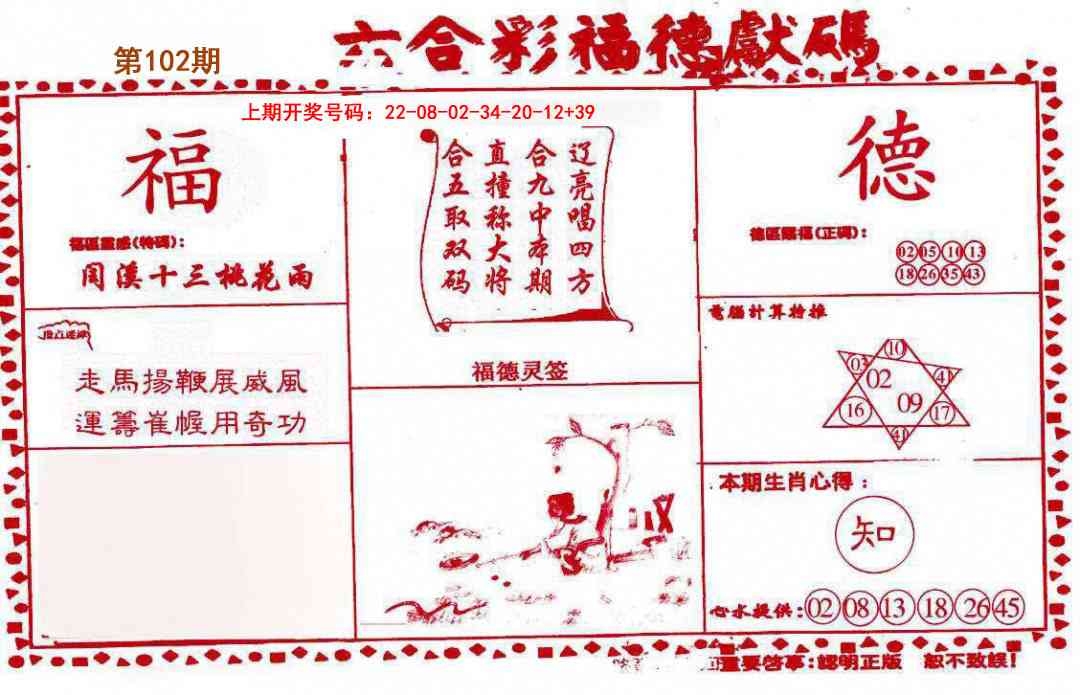 六合彩福德獻碼
第102期
上期开奖号码：22-08-02-34-20-12+39
福
福區靈感(特碼)：
閏溪十三桃花雨
走馬揚鞭展威風
運籌崔幄用奇功
辽亮唱四方
合九中本期
直撞称大将
合五取双码
福德灵签
德
德區賜福(正碼)：
02 05 10 13
18 26 35 43
電腦計算特推
10
03 41
02
09
16 17
41
本期生肖心得：
知
心水提供：02 08 13 18 26 45
重要啓事：認明正版 恕不致誤！